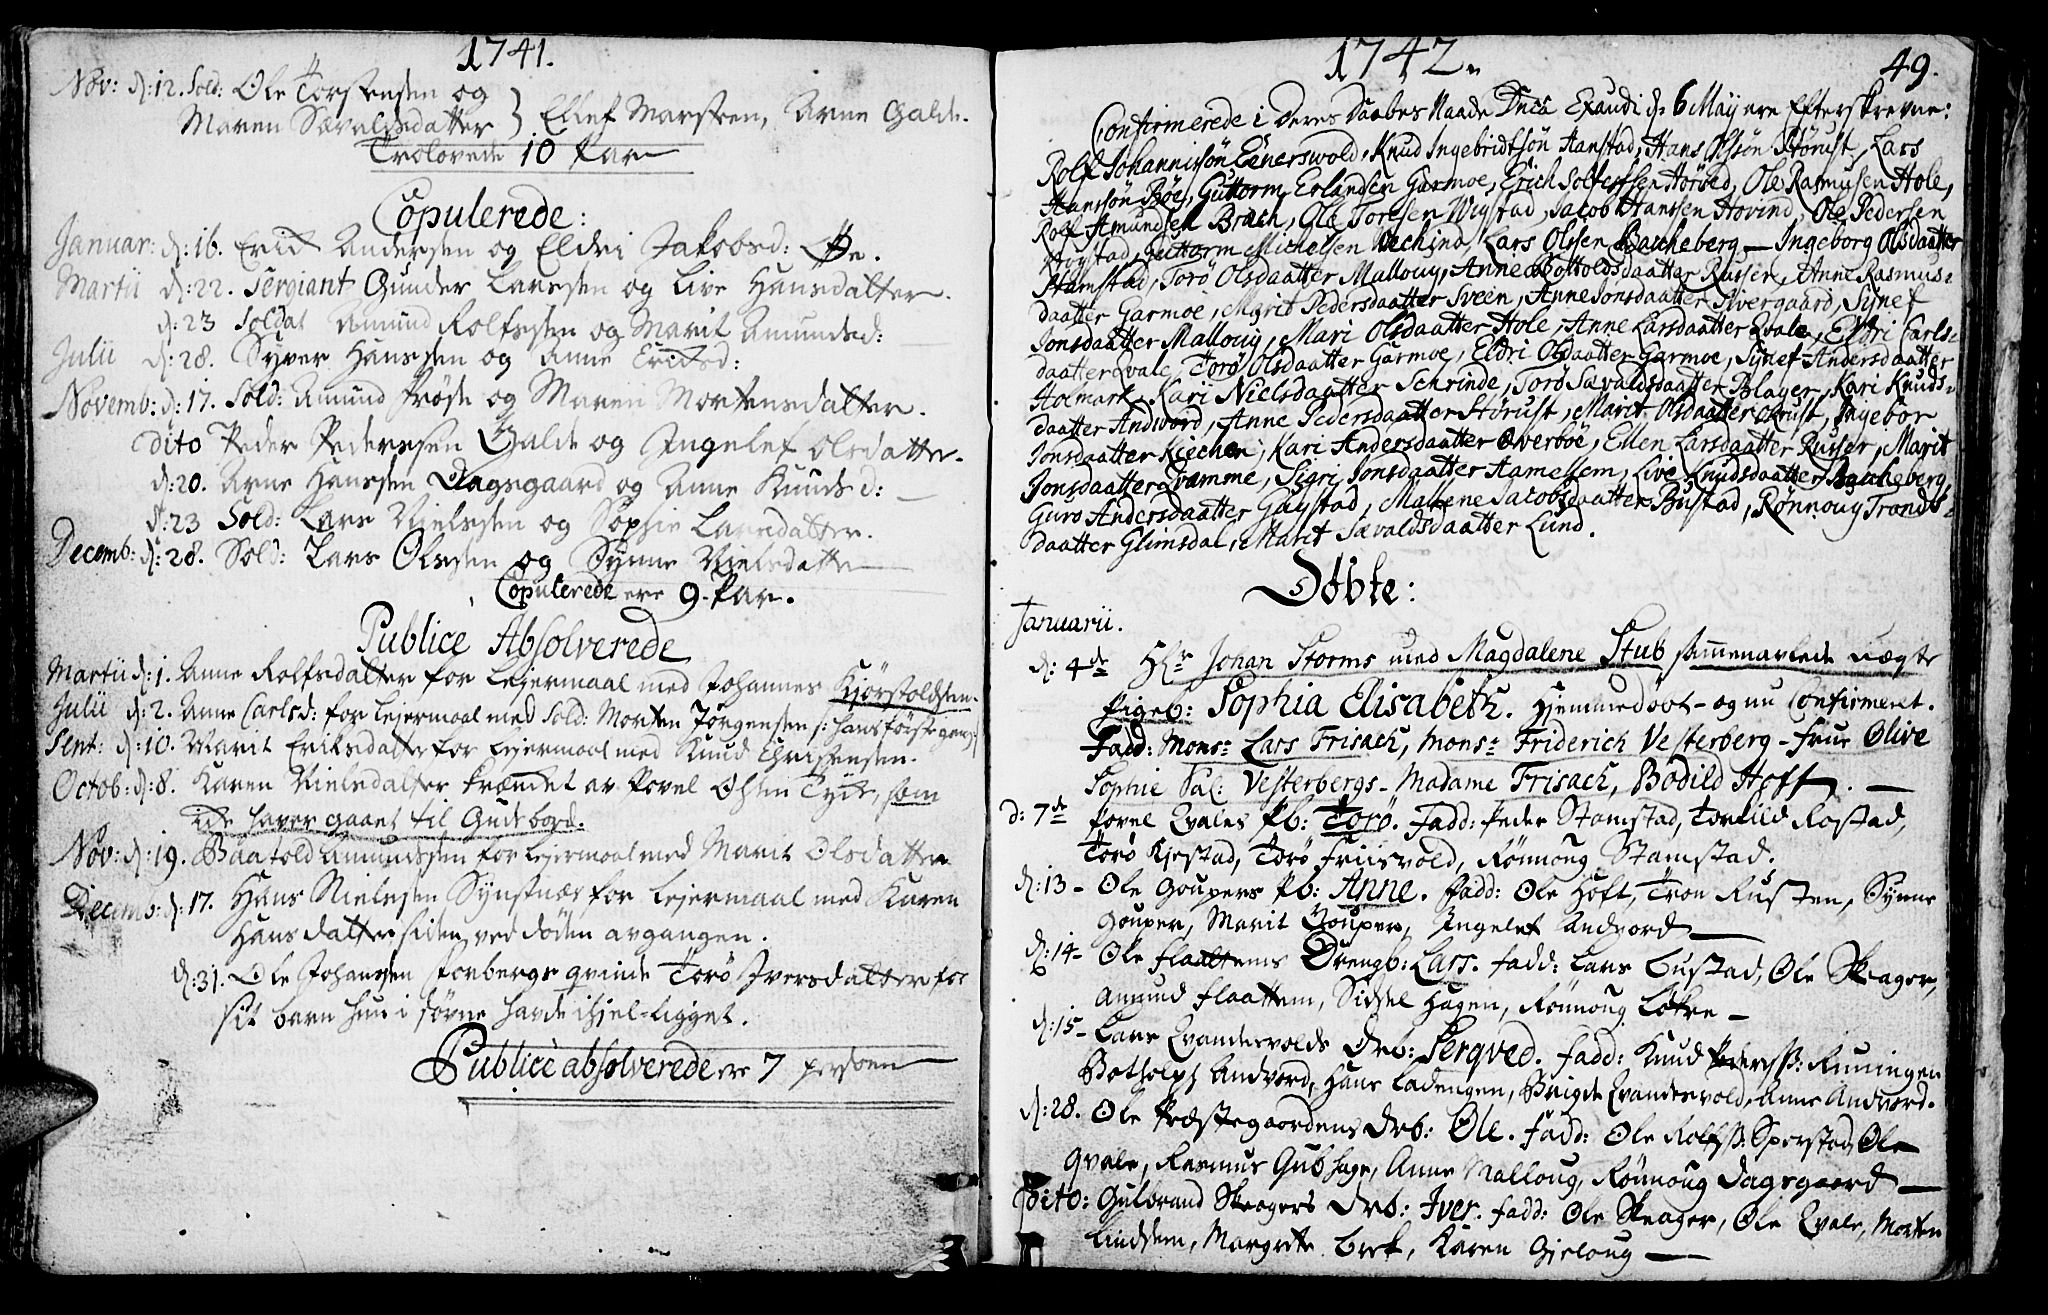 1741.
Nov: d: 12. Sold: Ole Torstensen og
Maren Sævaldsdatter } Ellef Marsteen, Arne Galde.
Trolovede 10 Par
Copulerede:
Januar: d: 16. Erik Andersen og Eldri Jakobsd:
Martii d: 22. Sergiant Gunder Larssen og Live Hansdatter.
d: 23 Soldat Amund Rolfssen og Marit Amundsd:
Julii d: 28. Syver Hanssen og Anne Eriksd:
Novemb: d: 17. Sold: Amund Prøste og Maren Mortensdatter.
Dito Peder Pederssen Galde og Ingelef Olsdatter.
d: 20. Arne Hanssen Dagsgaard og Anne Knudsd:
d: 23 Sold: Lars Nielssen og Sophie Larsdatter.
Decemb: d: 28. Sold: Lars Olssen og Synne Nielsdatter
Copulerede ere 9. Par.
Publice Absolverede
Martii d: 1. Anne Rolfsdatter for Lejermaal med Johannes Kjørstoldsen.
Julii d: 2. Anne Carlsd: for Lejermaal med Sold: Morten Jørgensen /: hans første gang :/
Sept: d: 10. Marit Eriksdatter for Lejermaal med Knud Christensen.
Octob: d: 8. Karen Nielsdatter krænket av Povel Olsen Tyde, som
ikke haver gaaet til Guds bord.
Nov: d: 19. Baatold Amundsen for Lejermaal med Marit Olsdatter
Decemb: d: 17. Hans Nielssen Synstnæs for Lejermaal med Karen
Hansdatter siden ved døden avgangen.
d: 31. Ole Johansen Forbergs qvinde Torø Iversdatter for
sit barn hun i søvne havde ihjel-ligget.
Publicè absolverede ere 7 personer
1742.
49.
Confirmerede i deres Daabes Naade Dnca Exaudi d. 6 Maij ere Efterskrevne:
Rolf Johannissøn Eönerswold, Knud Ingebridtsøn Stanstad, Hans Olssøn Störust, Lars
Hanssøn Bøe, Guttorm Erlandsen Garmoe, Erich Solfestsen Störsed, Ole Rasmusen Hole,
Rolf Amundsen Brach, Ole Toresen Wigstad, Jacob Hanssen Hovind, Ole Pedersen
Høystad, Guttorm Michelsen Vechind, Lars Olssen Bacheberg — Ingeborg Olsdaatter
Stamstad, Torø Olsdaatter Malloug, Anne Bottoldsdaatter Russer, Anne Rasmus-
daatter Garmoe, Marit Pedersdaatter Sveen, Anne Jonsdaatter Elvergaard, Synef
Jonsdaatter Malloug, Mari Olsdaatter Hole, Anne Larsdaatter Qvale, Eldri Carls-
daatter Qvale, Torø Olsdaatter Garmoe, Eldri Olsdaatter Garmoe, Synef Andersdaatter
Holmark, Kari Nielsdaatter Schrinde, Torø Sævaldsdaatter Blager, Kari Knuds-
daatter Andword, Anne Pedersdaatter Störust, Marit Olsdaatter Ohrust, Ingebor
Jonsdaatter Kirchen, Kari Andersdaatter Overbøe, Ellen Larsdaatter Russer, Marit
Jonsdaatter Qvamme, Sigri Jonsdaatter Hamelsem, Live Knudsdaatter Bacheberg,
Guro Andersdaatter Gaystad, Malhene Jacobsdaatter Bustad, Rønnoug Tronds-
daatter Glimsdal, Marit Sævaldsdaatter Lund.
Døbte:
Januarii.
d: 4de Hr Johan Storms med Magdalene Stub sammenavlede uægte
Pigeb: Sophia Elisabeth. Hjemmedøbt – og nu Confirmeret.
Fadd: Mons: Lars Frisach, Mons: Friderich Vesterberg – Frue Olive
Sophie Sal: Vesterbergs – Madame Frisach, Bodild Hoff. —
d: 7de Povel Qvales Pb: Torø. Fadd: Peder Stamstad, Torkild Rostad,
Torø Kjestad, Torø Friisvold, Rønnoug Stamstad.
d: 13 – Ole Goupers Pb: Anne. Fadd: Ole Hoft, Tron Rusten, Synne
Gouper, Marit Gouper, Ingelef Andvord —
d: 14 – Ole Flaattems Drengb: Lars. Fadd: Lars Bustad, Ole Skeager,
Amund Flaattem, Siddel Hagen, Rønnoug Løkre —
d: 15 – Lars Qvandesvolds Drb: Sergved. Fadd: Knud Pederss: Runingen
Botholph Andvord, Hans Ladengen, Brigte Qvandesvold, Anne Andvord.
d: 28. Ole Præstegaardens Drb: Ole. Fadd: Ole Rolfss: Sperstad, Ole
Qvale, Rasmus Gubhage, Anne Malloug, Rønnoug Dagsgaard —
Dito: Guldrand Skeagers Drb: Iver. Fadd: Ole Skeager, Ole Qvale, Morten
Lindsem, Margrete Brek, Karen Gjeloug —